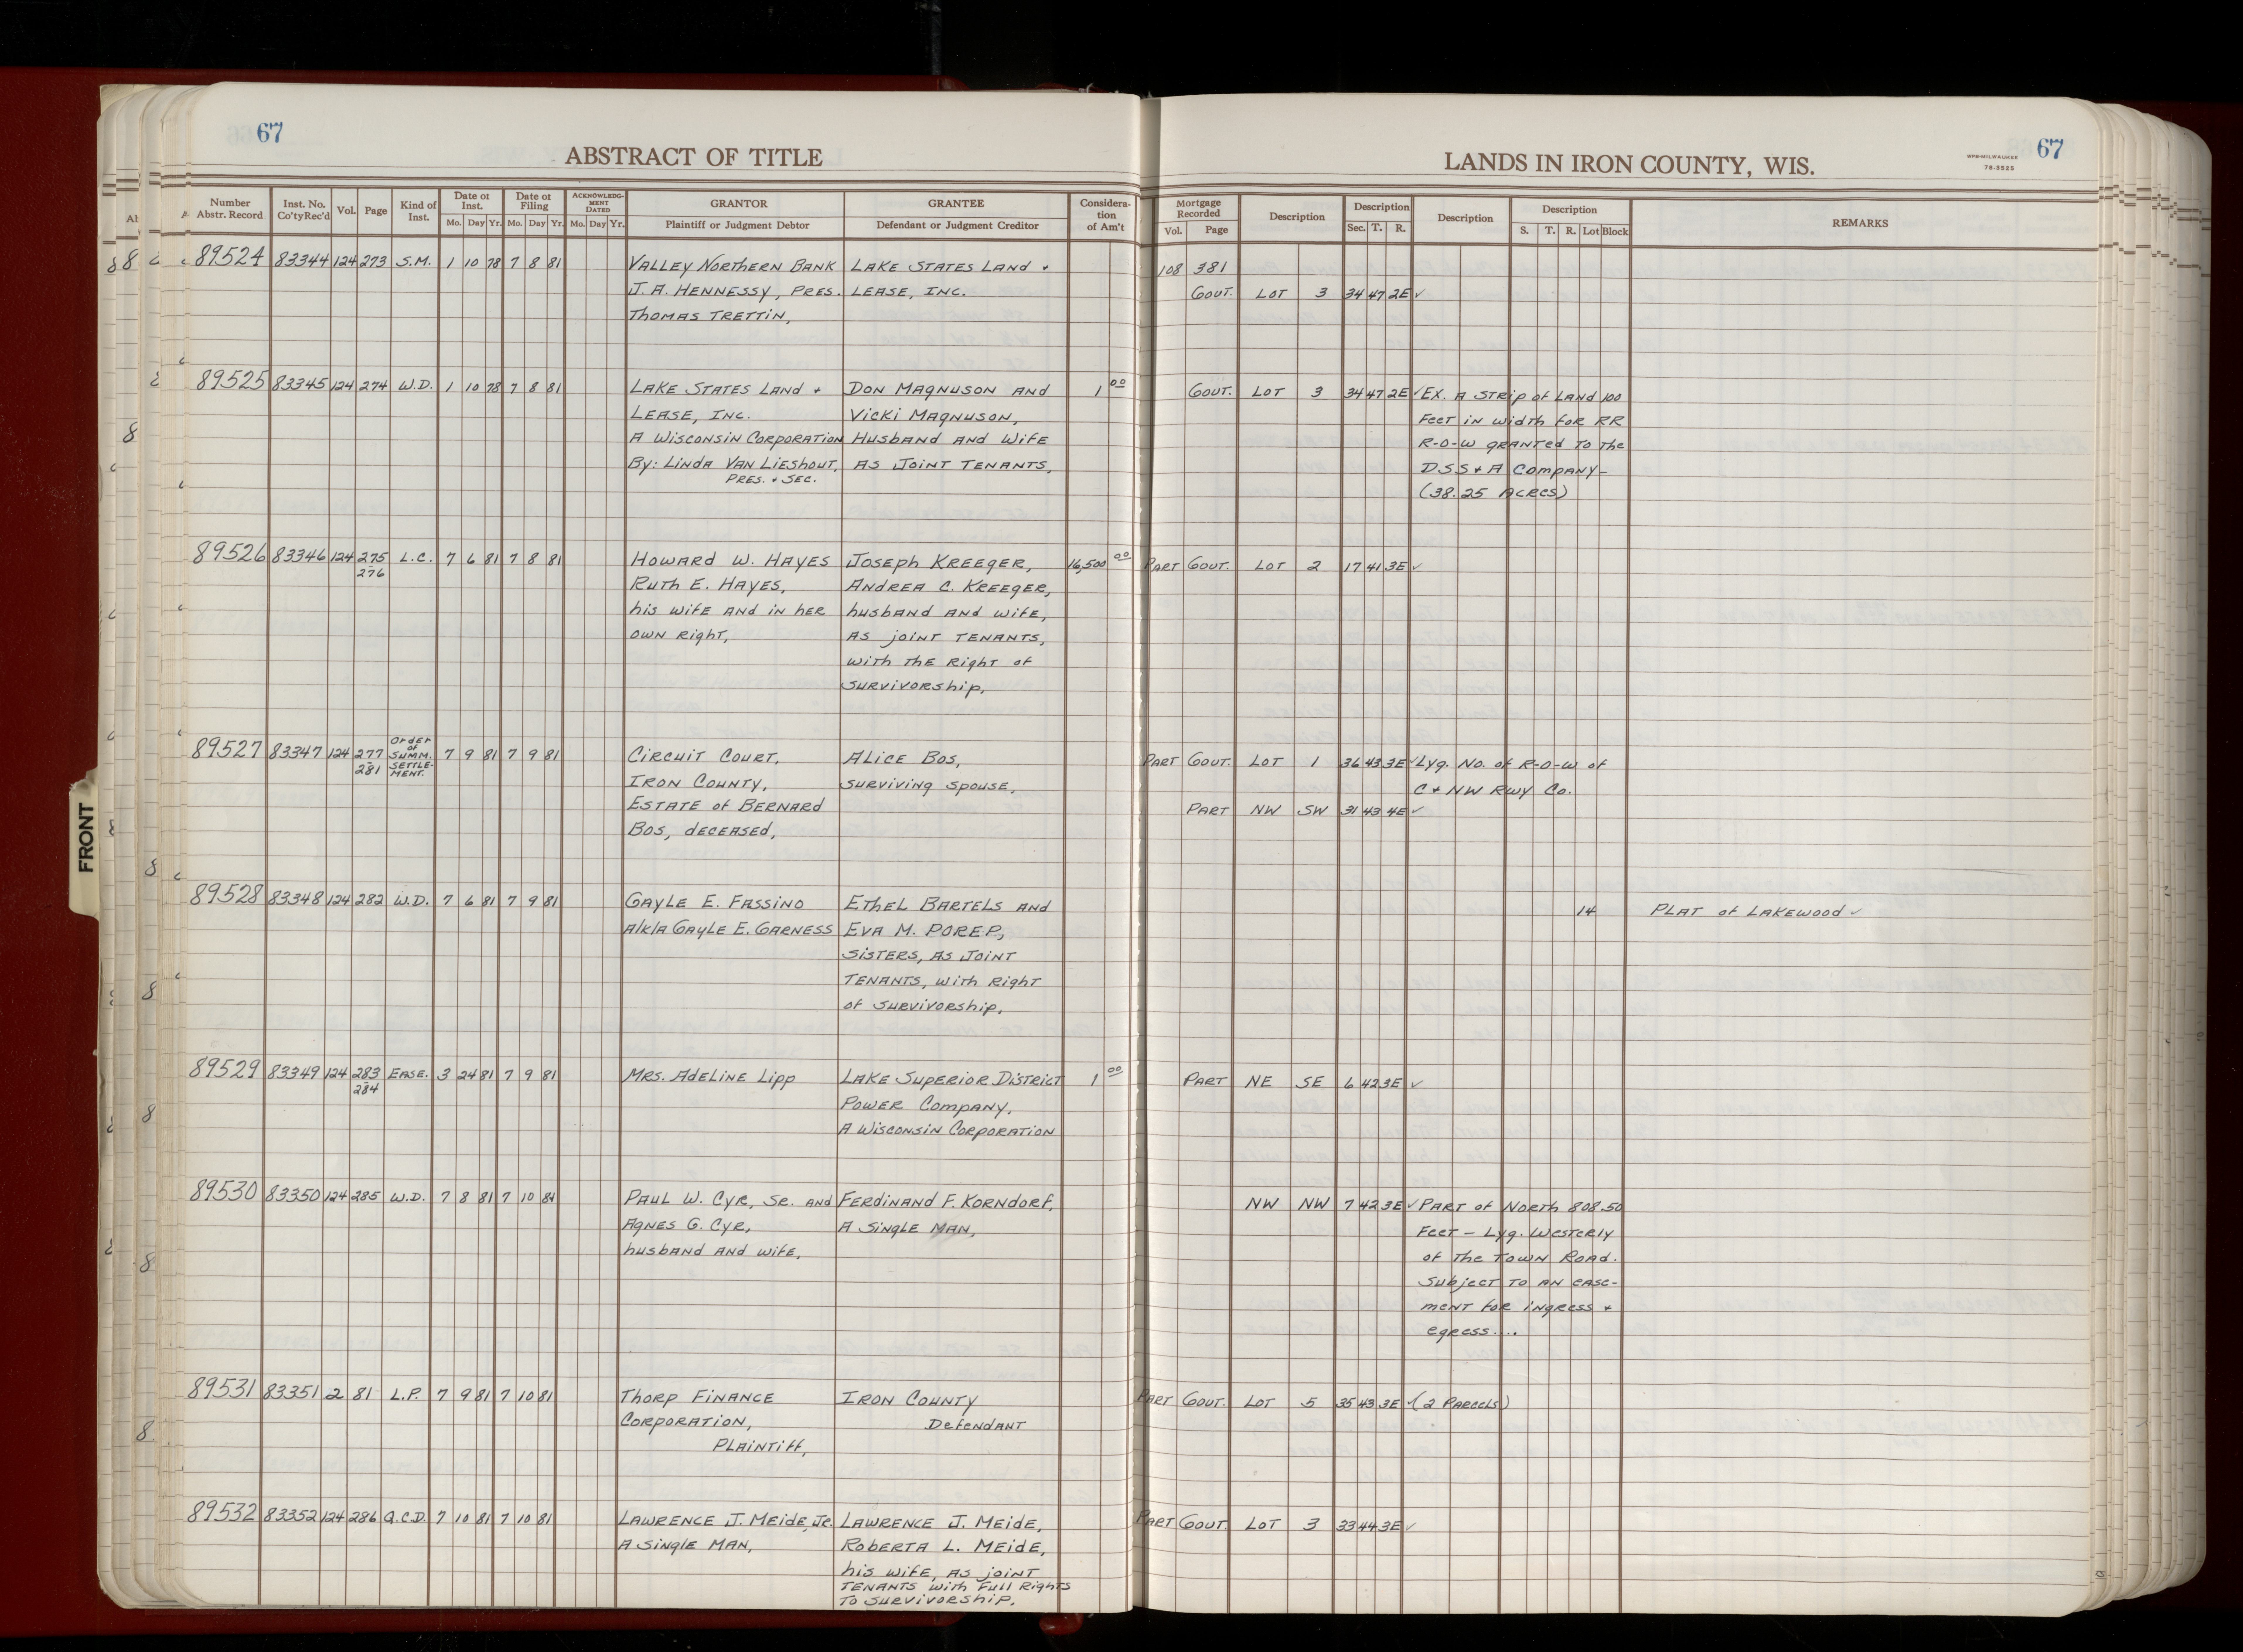 67
ABSTRACT OF TITLE
LANDS IN IRON COUNTY, WIS.
WPB-MILWAUKEE
78-3525
67
Number Abstr. Record
Inst. No. Co'ty Rec'd
Vol.
Page
Kind of Inst.
Date of Inst.
Mo. Day Yr.
Date of Filing
Mo. Day Yr.
ACKNOWLEDGMENT DATED
Mo. Day Yr.
GRANTOR
Plaintiff or Judgment Debtor
GRANTEE
Defendant or Judgment Creditor
Consideration of Am't
Mortgage Recorded
Vol. Page
Description
Description
Sec. T. R.
Description
Description
S. T. R. Lot Block
REMARKS
89524 83344 124 273 S.M. 1 10 78 7 8 81 VALLEY NORTHERN BANK LAKE STATES LAND + 108 381
J.A. HENNESSY, PRES. LEASE, INC. GOUT. LOT 3 34 47 2E ✓
THOMAS TRETTIN,
89525 83345 124 274 W.D. 1 10 78 7 8 81 LAKE STATES LAND + DON MAGNUSON AND 1 00 GOUT. LOT 3 34 47 2E ✓ EX. A STRIP of LAND 100
LEASE, INC. VICKI MAGNUSON, FEET IN WIDTH FOR RR
A WISCONSIN CORPORATION HUSBAND AND WIFE R-O-W GRANTED TO THE
By: LINDA VAN LIESHOUT, AS JOINT TENANTS, D.S.S + A COMPANY-
PRES. + SEC. (38.25 ACRES)
89526 83346 124 275 L.C. 7 6 81 7 8 81 HOWARD W. HAYES JOSEPH KREEGER, 16,500 00 PART GOUT. LOT 2 17 41 3E ✓
276 RUTH E. HAYES, ANDREA C. KREEGER,
his WIFE AND IN HER husband AND WIFE,
OWN RIGHT, AS JOINT TENANTS,
WITH THE RIGHT of
SURVIVORSHIP,
89527 83347 124 277 ORDER of SUMM. SETTLE-MENT. 7 9 81 7 9 81 CIRCUIT COURT, ALICE BOS, PART GOUT. LOT 1 36 43 3E ✓ Lyg. No. of R-O-W of
281 IRON COUNTY, SURVIVING SPOUSE, C + NW RWY CO.
ESTATE of BERNARD PART NW SW 31 43 4E ✓
BOS, DECEASED,
89528 83348 124 282 W.D. 7 6 81 7 9 81 GAYLE E. FASSINO ETHEL BARTELS AND 14 PLAT of LAKEWOOD ✓
A/K/A GAYLE E. GARNESS EVA M. POREP,
SISTERS, AS JOINT
TENANTS, WITH RIGHT
of SURVIVORSHIP,
89529 83349 124 283 EASE. 3 24 81 7 9 81 MRS. ADELINE LIPP LAKE SUPERIOR DISTRICT 1 00 PART NE SE 6 42 3E ✓
284 POWER COMPANY,
A WISCONSIN CORPORATION
89530 83350 124 285 W.D. 7 8 81 7 10 81 PAUL W. CYR, SR. AND FERDINAND F. KORNDORF, NW NW 7 42 3E ✓ PART of NORTH 808.50
AGNES G. CYR, A SINGLE MAN, FEET - Lyg. WESTERLY
husband AND WIFE, of THE TOWN ROAD.
SUBJECT TO AN EASE-
MENT FOR INGRESS +
EGRESS....
89531 83351 2 81 L.P. 7 9 81 7 10 81 THORP FINANCE IRON COUNTY PART GOUT. LOT 5 35 43 3E ✓ (2 PARCELS)
CORPORATION, DEFENDANT
PLAINTIFF,
89532 83352 124 286 Q.C.D. 7 10 81 7 10 81 LAWRENCE J. MEIDE, JR. LAWRENCE J. MEIDE, PART GOUT. LOT 3 33 44 3E ✓
A SINGLE MAN, ROBERTA L. MEIDE,
his WIFE, AS JOINT
TENANTS WITH FULL RIGHTS
TO SURVIVORSHIP.
FRONT